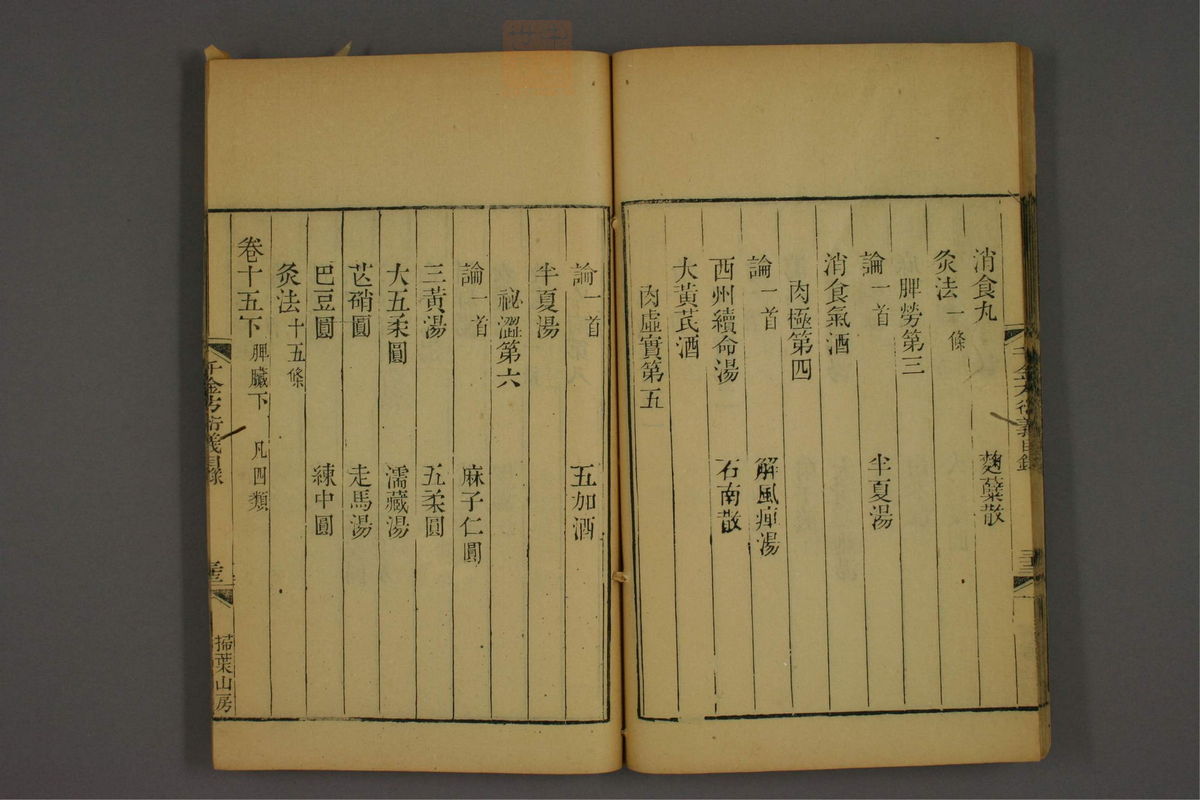 消食丸 麴蘖散
灸法一條
脾勞第三
論一首 半夏湯
消食氣酒
肉極第四
論一首 解風痺湯
西州續命湯 石南散
大黃芪酒
肉虛實第五
論一首 五加酒
半夏湯
祕澀第六
論一首 麻子仁圓
三黃湯 五柔圓
大五柔圓 濡藏湯
芒硝圓 走馬湯
巴豆圓 練中圓
灸法十五條
卷十五下 脾臟下 凡四類
千金方衍義目錄
掃葉山房